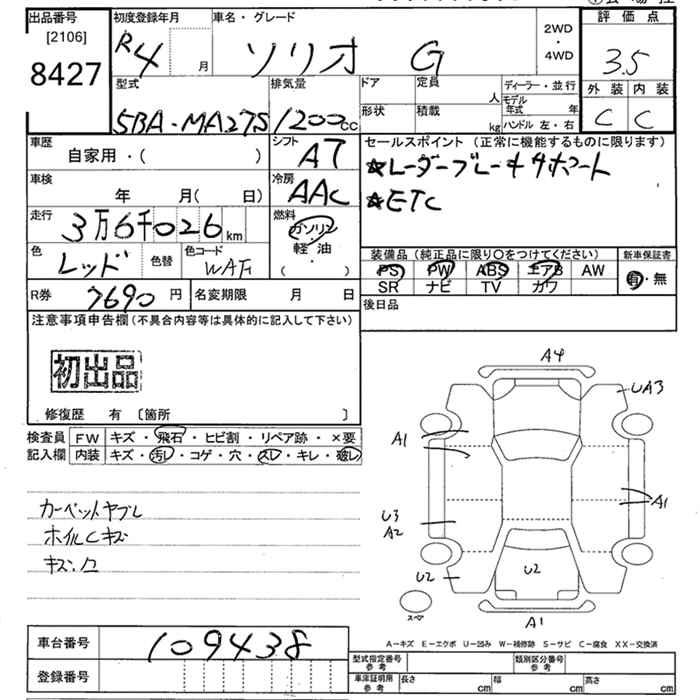 出品番号
[2106]
8427
初度登録年月
R4 月
車名・グレード
ソリオ G
2WD
・
4WD
評価点
3.5
外装 内装
C C
型式
5BA-MA27S
排気量
1200cc
ドア
定員
人
形状
積載
kg
ディーラー・並行
モデル年式 年
ハンドル 左・右
車歴
自家用・( )
シフト
AT
セールスポイント(正常に機能するものに限ります)
★レーダーブレーキサポート
★ETC
車検
年 月( 日)
冷房
AAC
走行
3万6千026km
燃料
ガソリン
軽油
( )
色
レッド
色替
色コード
装備品(純正品に限り〇をつけてください)
PS PW ABS エアB AW
SR ナビ TV カワ
新車保証書
有・無
R券
7690円
名変期限 月 日
後日品
注意事項申告欄(不具合内容等は具体的に記入して下さい)
初出品
修復歴 有 〔箇所 〕
検査員
記入欄
FW キズ・飛石・ヒビ割・リペア跡・×要
内装 キズ・汚レ・コゲ・穴・スレ・キレ・破レ
カーペットヤブレ
ホイルCキズ
A4
UA3
A1
A1
U3
A2
U2
U2
スペア
A1
A-キズ E-エクボ U-凹み W-補修跡 S-サビ C-腐食 XX-交換済
車台番号
109438
登録番号
型式指定番号
参考
類別区分番号
参考
車庫証明用
参考
長さ cm
幅 cm
高さ cm